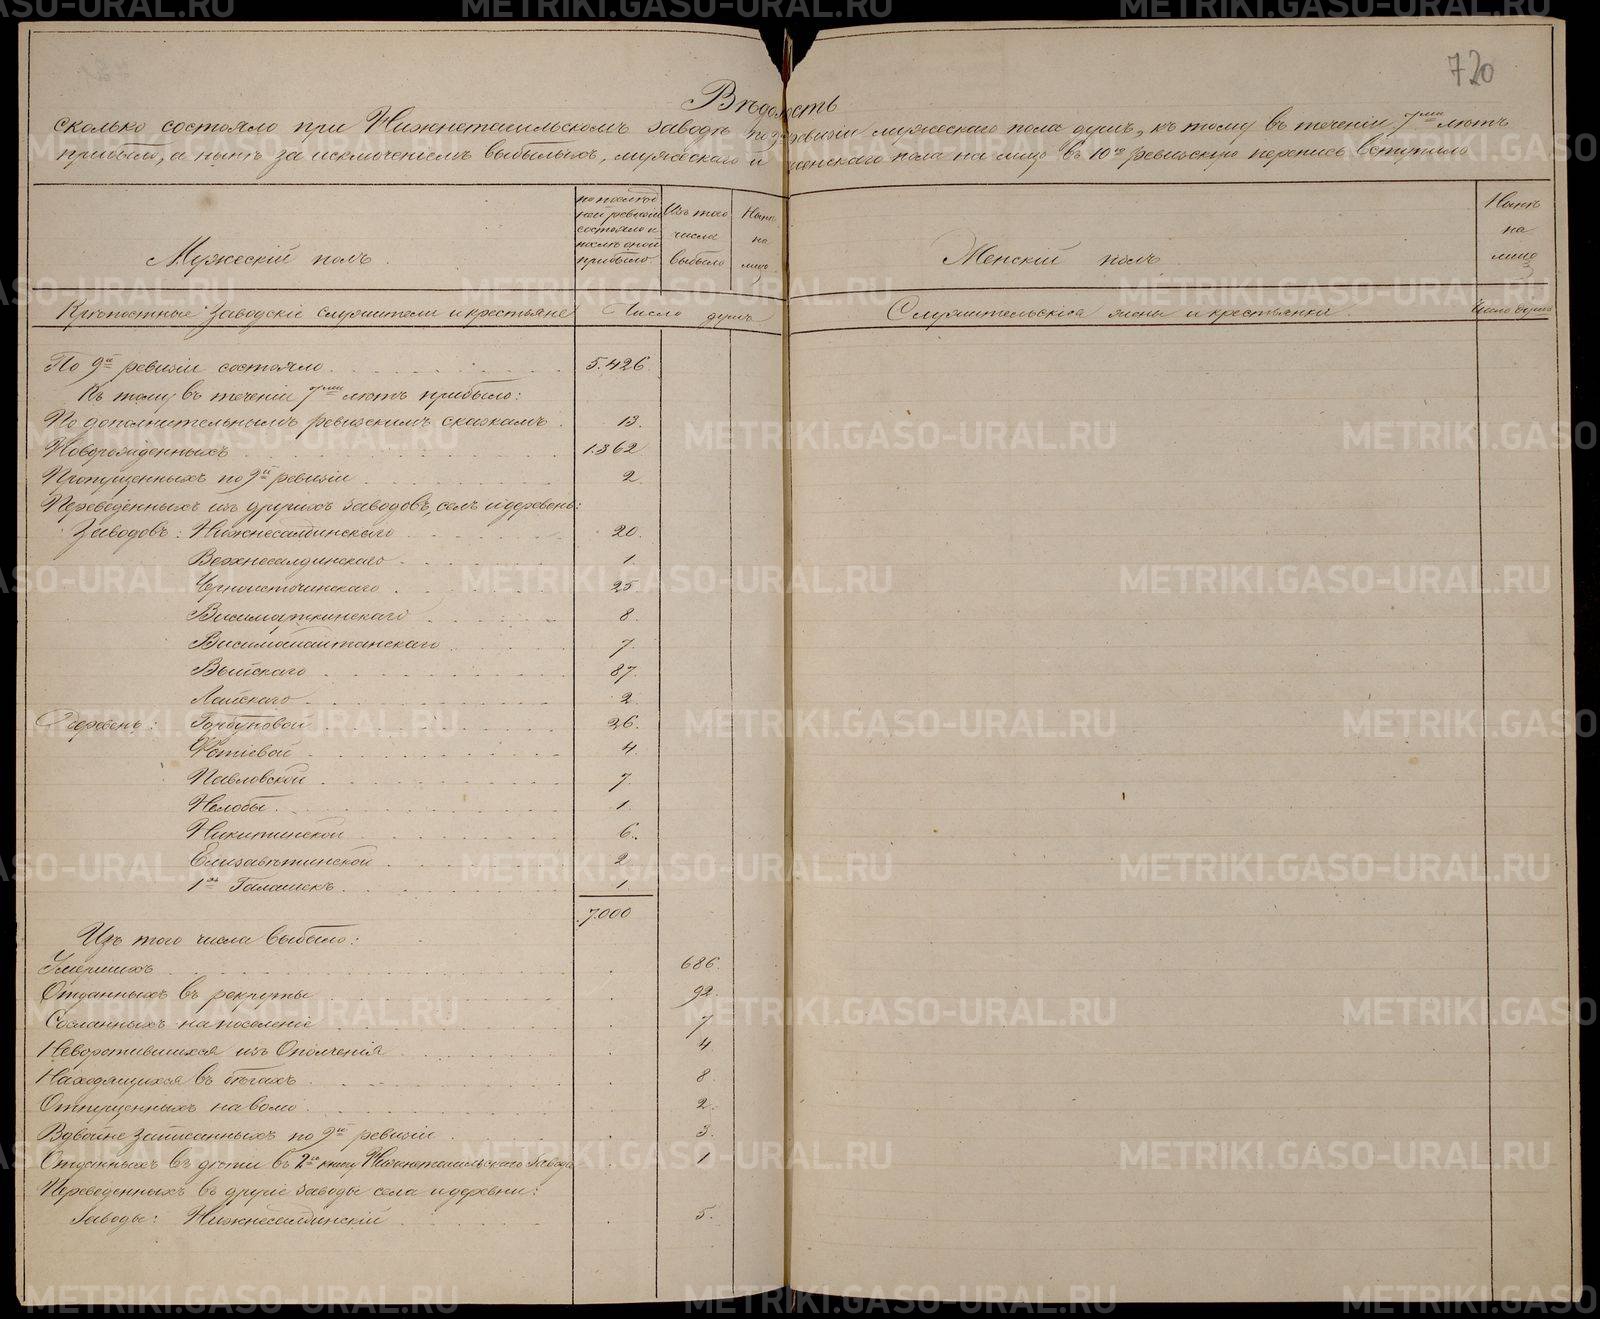 720
Вѣдомость
сколько состояло при Нижнетагильскомъ заводѣ по 9й ревизіи мужескаго пола душъ, къ тому въ теченіи 7ми лѣтъ
прибыло, а нынѣ за исключеніемъ выбылыхъ, мужескаго и женскаго пола на лицо въ 10ю ревизскую перепись вступило
Мужескій полъ.
по послѣд
ней ревизіи
состояло и
послѣ оной
прибыло.
Изъ того
числа
выбыло
Нынѣ
на
лицо.
Женскій полъ
Нынѣ
на
лицо
Крѣпостные заводскіе служители и крестьяне
Число душъ
Служительскія жены и крестьянки.
Число душъ
По 9й ревизіи состояло 5.426.
Къ тому въ теченіи 7ми лѣтъ прибыло:
По дополнительнымъ ревизскимъ сказкамъ 13.
Новорожденныхъ 1.362
Пропущенныхъ по 9й ревизіи 2.
Переведенныхъ изъ другихъ заводовъ, селъ и деревень:
Заводовъ: Нижнесалдинскаго 20.
Верхнесалдинскаго 1.
Черноисточинскаго 25.
Висимоуткинскаго 8.
Висимошайтанскаго 7.
Выйскаго 87.
Лайскаго 2
Деревень: Горбуновой 26.
Фотѣевой 4.
Павловской 7.
Нелобы 1.
Никитинской 6.
Елизаветинской 2
1хъ Галашекъ 1.
7.000
Изъ того числа выбыло:
Умершихъ 686.
Отданныхъ въ рекруты 92.
Сосланныхъ на поселеніе 7
Неворотившихся изъ Ополченія 4
Находящихся въ бѣгахъ 8.
Отпущенныхъ на волю 2.
Вдвойне записанныхъ по 9й ревизіи 3.
Отданныхъ въ дѣти въ 2ю книгу Нижнетагильскаго завода 1
Переведенныхъ въ другіе заводы села и деревни:
Заводы: Нижнесалдинскій 5.
METRIKI.GASO-URAL.RU